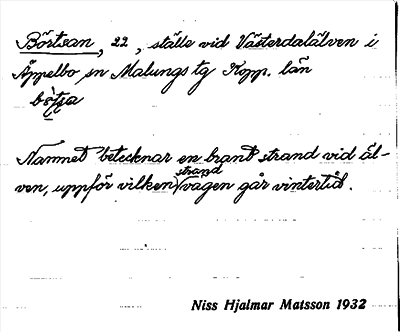 Börtsan, 22, ställe vid Västerdalälven i
Äppelbo sn Malungs tg Kopp. län
Namnet betecknar en brant strand vid äl-
ven, uppför vilken strand vägen går vintertid.
Niss Hjalmar Matsson 1932